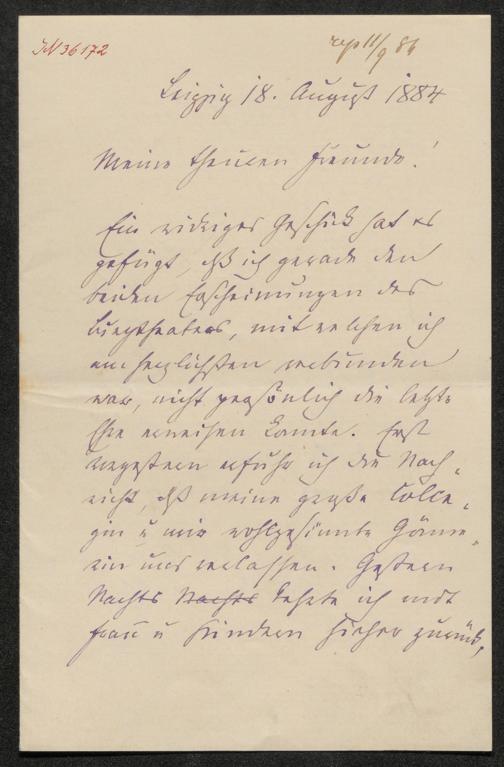 IN 36172
rep 11/9 84
Leipzig 18. August 1884
Meine theuren Freunde!
Ein widriges Geschick hat es
gefügt, dß ich gerade den
beiden Erscheinungen des
Burgtheaters, mit welchen ich
am herzlichsten verbunden
war, nicht persönlich die letzte
Ehre erweisen konnte. Erst
vorgestern erfuhr ich die Nach-
richt, dß meine große Colle-
gin u mir wohlgesinnte Gönne-
rin uns verlassen. Gestern
Nachts Nachts kehrte ich mit
Frau u Kindern hieher zurück,